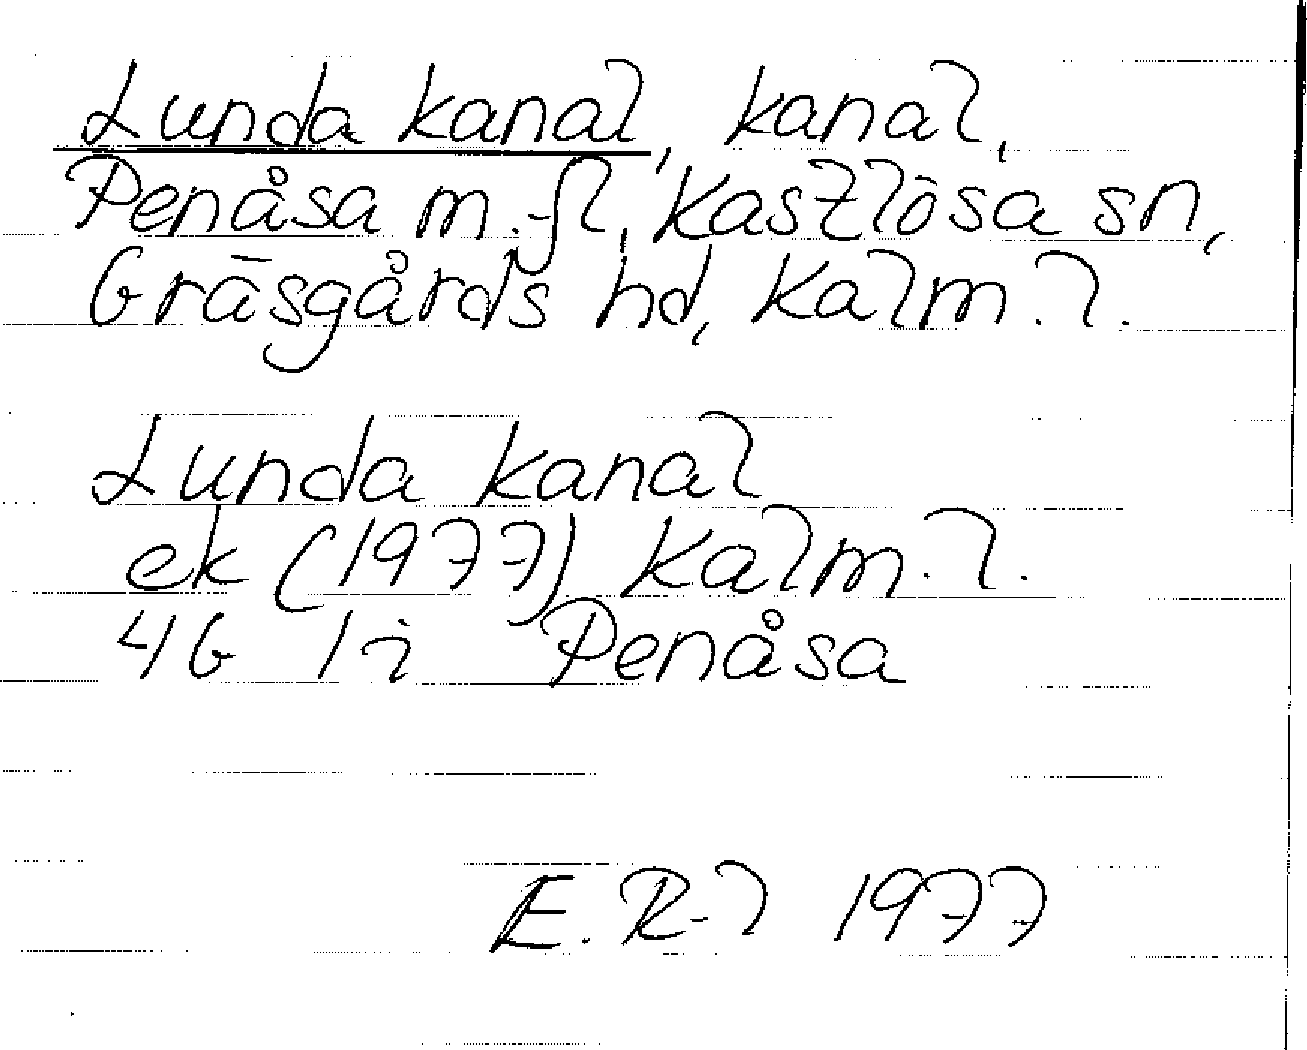 Lunda kanal, kanal,
Penåsa m. fl., Kastlösa sn,
Gräsgårds hd, Kalm. l.
Lunda kanal
ek (1977) Kalm. l.
4G 1i Penåsa
E. R-l 1977